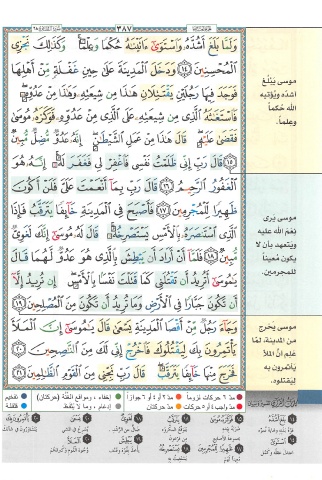 ٣٨٧
وَلَمَّا بَلَغَ أَشُدَّهُۥ وَٱسْتَوَىٰٓ ءَاتَيْنَٰهُ حُكْمًا وَعِلْمًا ۚ وَكَذَٰلِكَ نَجْزِى
ٱلْمُحْسِنِينَ ١٤ وَدَخَلَ ٱلْمَدِينَةَ عَلَىٰ حِينِ غَفْلَةٍ مِّنْ أَهْلِهَا
فَوَجَدَ فِيهَا رَجُلَيْنِ يَقْتَتِلَانِ هَٰذَا مِن شِيعَتِهِۦ وَهَٰذَا مِنْ عَدُوِّهِۦ ۖ
فَٱسْتَغَٰثَهُ ٱلَّذِى مِن شِيعَتِهِۦ عَلَى ٱلَّذِى مِنْ عَدُوِّهِۦ فَوَكَزَهُۥ مُوسَىٰ
فَقَضَىٰ عَلَيْهِ ۖ قَالَ هَٰذَا مِنْ عَمَلِ ٱلشَّيْطَٰنِ ۖ إِنَّهُۥ عَدُوٌّ مُّضِلٌّ مُّبِينٌ
١٥ قَالَ رَبِّ إِنِّى ظَلَمْتُ نَفْسِى فَٱغْفِرْ لِى فَغَفَرَ لَهُۥٓ ۚ إِنَّهُۥ هُوَ
ٱلْغَفُورُ ٱلرَّحِيمُ ١٦ قَالَ رَبِّ بِمَآ أَنْعَمْتَ عَلَىَّ فَلَنْ أَكُونَ
ظَهِيرًا لِّلْمُجْرِمِينَ ١٧ فَأَصْبَحَ فِى ٱلْمَدِينَةِ خَآئِفًا يَتَرَقَّبُ فَإِذَا
ٱلَّذِى ٱسْتَنصَرَهُۥ بِٱلْأَمْسِ يَسْتَصْرِخُهُۥ ۚ قَالَ لَهُۥ مُوسَىٰٓ إِنَّكَ لَغَوِىٌّ
مُّبِينٌ ١٨ فَلَمَّآ أَنْ أَرَادَ أَن يَبْطِشَ بِٱلَّذِى هُوَ عَدُوٌّ لَّهُمَا قَالَ
يَٰمُوسَىٰٓ أَتُرِيدُ أَن تَقْتُلَنِى كَمَا قَتَلْتَ نَفْسًۢا بِٱلْأَمْسِ ۖ إِن تُرِيدُ إِلَّآ
أَن تَكُونَ جَبَّارًا فِى ٱلْأَرْضِ وَمَا تُرِيدُ أَن تَكُونَ مِنَ ٱلْمُصْلِحِينَ ١٩
وَجَآءَ رَجُلٌ مِّنْ أَقْصَا ٱلْمَدِينَةِ يَسْعَىٰ قَالَ يَٰمُوسَىٰٓ إِنَّ ٱلْمَلَأَ
يَأْتَمِرُونَ بِكَ لِيَقْتُلُوكَ فَٱخْرُجْ إِنِّى لَكَ مِنَ ٱلنَّٰصِحِينَ ٢٠
فَخَرَجَ مِنْهَا خَآئِفًا يَتَرَقَّبُ ۖ قَالَ رَبِّ نَجِّنِى مِنَ ٱلْقَوْمِ ٱلظَّٰلِمِينَ ٢١
موسى يَبْلُغ
أشدّه ويُؤتيه
الله حُكماً
وعِلماً.
موسى يرى
نِعَم الله عليه
ويتعهد بأن لا
يكون مُعيناً
للمجرمين.
موسى يخرج
من المدينة، لمّا
عَلِمَ أنّ الملأ
يأتمرون به
ليقتلوه.
مدّ ٦ حركات لزوماً
مدّ ٢ أو ٤ أو ٦ جوازاً
إخفاء ، ومواقع الغُنّة (حركتان)
تفخيم
مدّ واجب ٤ أو ٥ حركات
مدّ حركتان
إدغام ، وما لا يُلفظ
قلقلة